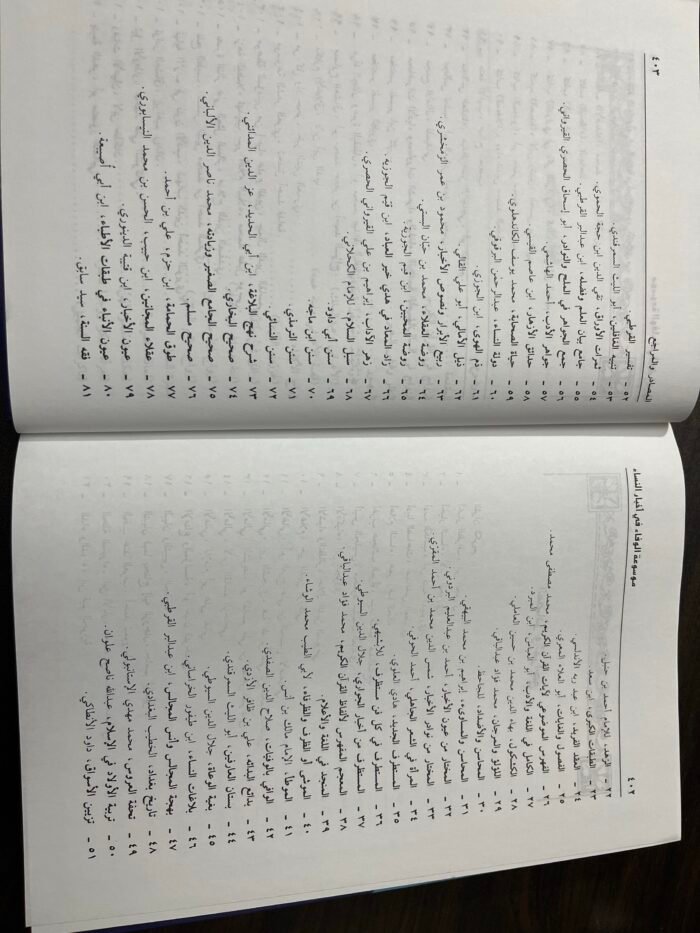 موسوعة الوفاء في أخبار النساء
٤٠٢
٢٢ - الزهد، للإمام أحمد بن حنبل.
٢٣ - الطبقات الكبرى، ابن سعد.
٢٤ - العقد الفريد، ابن عبد ربه الأندلسي.
٢٥ - الفصول والغايات، أبو العلاء المعري.
٢٦ - الفهرس الموضوعي لآيات القرآن الكريم، محمد مصطفى محمد.
٢٧ - الكامل في اللغة والأدب، أبو العباس، ابن المبرد.
٢٨ - الكشكول، بهاء الدين محمد بن حسين العاملي.
٢٩ - اللؤلؤ والمرجان، محمد فؤاد عبدالباقي.
٣٠ - المحاسن والأضداد، للجاحظ.
٣١ - المحاسن والمساوىء، إبراهيم بن محمد البيهقي.
٣٢ - المختار من عيون الأخبار، أحمد بن عبدالعليم البردوني.
٣٣ - المختار من نوادر الأخبار، شمس الدين محمد بن أحمد المقري.
٣٤ - المرأة في الشعر الجاهلي، أحمد الحوفي.
٣٥ - المستطرف الجديد، هادي العلوي.
٣٦ - المستطرف في كل فن مستظرف، للأبشيهي.
٣٧ - المستظرف من أخبار الجواري، جلال الدين السيوطي.
٣٨ - المعجم المفهرس لألفاظ القرآن الكريم، محمد فؤاد عبدالباقي.
٣٩ - المنجد في اللغة والأعلام.
٤٠ - الموشى أو الظرف والظرفاء، لأبي الطيب محمد الوشاء.
٤١ - الموطأ، الإمام مالك بن أنس.
٤٢ - الوافي بالوفيات، صلاح الدين الصفدي.
٤٣ - بدائع البدائه، علي بن ظافر الأزدي.
٤٤ - بستان العارفين، أبو الليث السمرقندي.
٤٥ - بغية الوعاة، جلال الدين السيوطي.
٤٦ - بلاغات النساء، ابن طيفور الخراساني.
٤٧ - بهجة المجالس وأنس المجالس، ابن عبدالبر القرطبي.
٤٨ - تاريخ بغداد، الخطيب البغدادي.
٤٩ - تحفة العروس، محمد مهدي الإستانبولي.
٥٠ - تربية الأولاد في الإسلام، عبدالله ناصح علوان.
٥١ - تزيين الأسواق، داود الأنطاكي.
المصادر والمراجع
٤٠٣
٥٢ - تفسير القرطبي.
٥٣ - تنبيه الغافلين، أبو الليث السمرقندي.
٥٤ - ثمرات الأوراق، تقي الدين ابن حجة الحموي.
٥٥ - جامع بيان العلم وفضله، ابن عبدالبر القرطبي.
٥٦ - جمع الجواهر في الملح والنوادر، أبو إسحاق الحصري القيرواني.
٥٧ - جواهر الأدب، أحمد الهاشمي.
٥٨ - حدائق الأزهار، ابن عاصم القيسي.
٥٩ - حياة الصحابة، محمد يوسف الكاندهلوي.
٦٠ - دولة النساء، عبدالرحمن البرقوقي.
٦١ - ذم الهوى، ابن الجوزي.
٦٢ - ذيل الأمالي، أبو علي القالي.
٦٣ - ربيع الأبرار ونصوص الأخبار، محمود بن عمر الزمخشري.
٦٤ - روضة العقلاء، محمد بن حبان البستي.
٦٥ - روضة المحبين، ابن قيم الجوزية.
٦٦ - زاد المعاد في هدي خير العباد، ابن قيم الجوزيه.
٦٧ - زهر الآداب، إبراهيم بن علي القيرواني الحصري.
٦٨ - سبل السلام، للإمام الكحلاني.
٦٩ - سنن أبي داود.
٧٠ - سنن ابن ماجه.
٧١ - سنن الترمذي.
٧٢ - سنن النسائي.
٧٣ - شرح نهج البلاغة، ابن أبي الحديد، عز الدين المدائني.
٧٤ - صحيح البخاري.
٧٥ - صحيح الجامع الصغير وزيادته، محمد ناصر الدين الألباني.
٧٦ - صحيح مسلم.
٧٧ - طوق الحمامة، ابن حزم، علي بن أحمد.
٧٨ - عقلاء المجانين، ابن حبيب، الحسن بن محمد النيسابوري.
٧٩ - عيون الأخبار، ابن قتيبة الدينوري.
٨٠ - عيون الأنباء في طبقات الأطباء، ابن أبي أصيبعة.
٨١ - فقه السنة، سيد سابق.